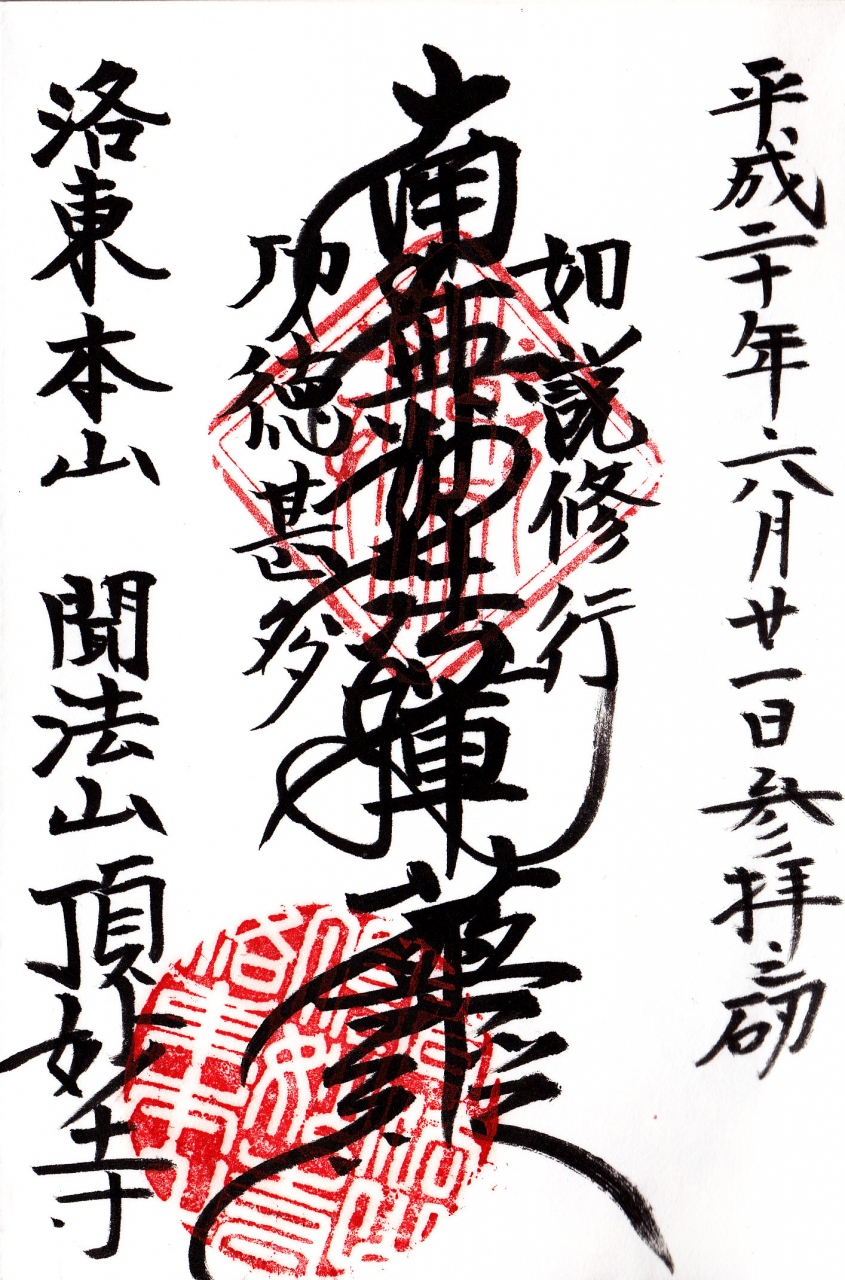 平成二十年六月廿一日参拝之砌
如説修行
南無妙法蓮華経
功徳甚多
洛東本山 聞法山 頂妙寺